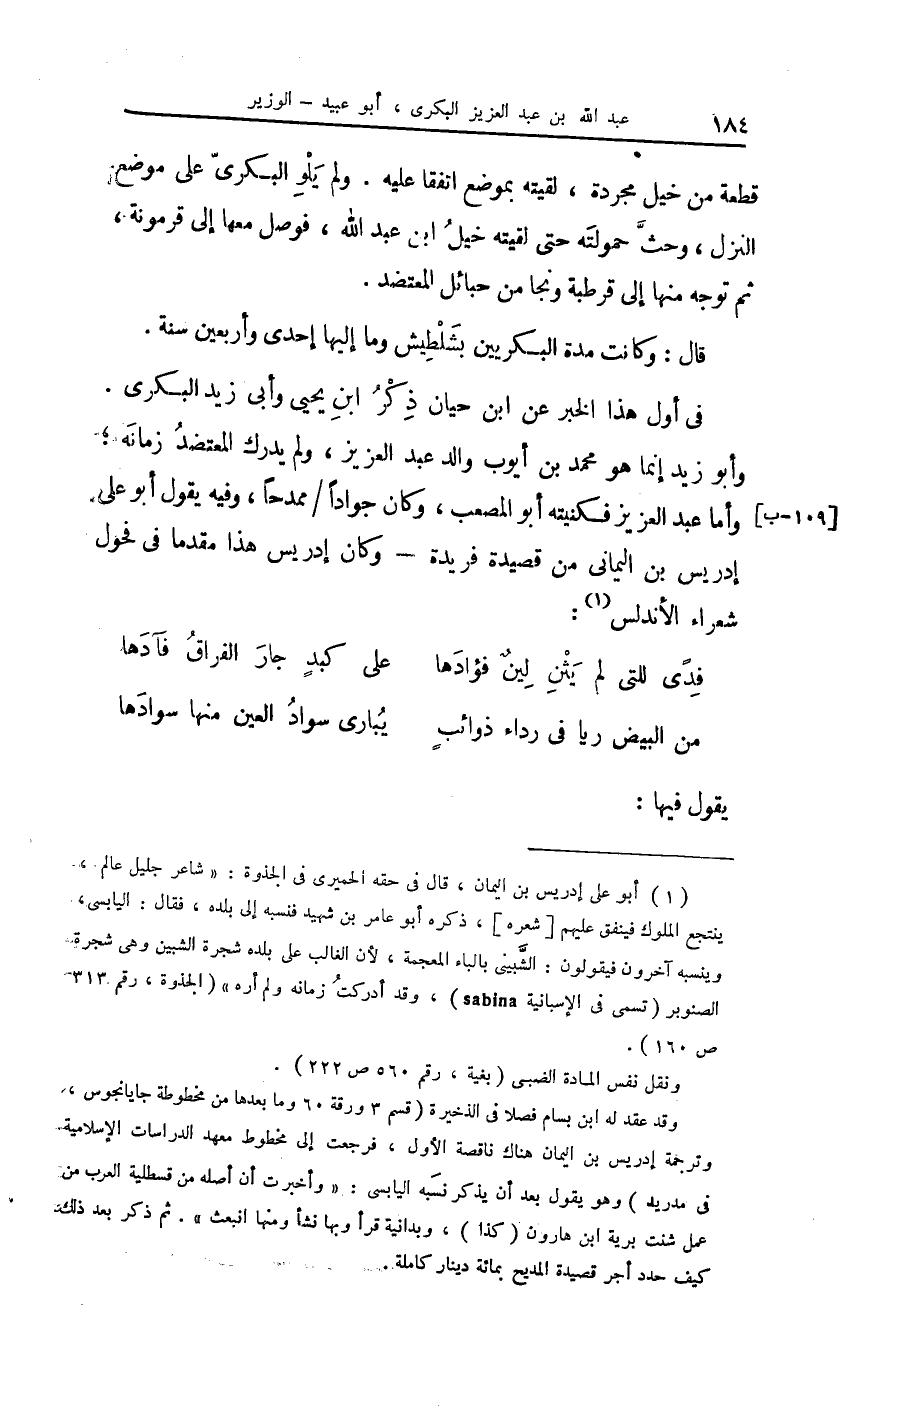 ١٨٤ عبد الله بن عبد العزيز البكرى ، أبو عبيد — الوزير
قطعة من خيل مجردة ، لقيته بموضع اتفقا عليه . ولم يَلْوِ البكرىّ على موضع
النزل ، وحثَّ حمولتَه حتى لقيته خيلُ ابن عبد الله ، فوصل معها إلى قرمونة ،
ثم توجه منها إلى قرطبة ونجا من حبائل المعتضد .
قال : وكانت مدة البكريين بشَلْطِيش وما إليها إحدى وأربعين سنة .
فى أول هذا الخبر عن ابن حيان ذِكْرُ ابنِ يحيى وأبى زيد البكرى .
وأبو زيد إنما هو محمد بن أيوب والد عبد العزيز ، ولم يدرك المعتضدُ زمانَه ؛
[١٠٩-ب] وأما عبد العزيز فكنيته أبو المصعب ، وكان جواداً / ممدحاً ، وفيه يقول أبو على
إدريس بن اليمانى من قصيدة فريدة — وكان إدريس هذا مقدما فى فحول
شعراء الأندلس (١) :
فِدًى للتى لم يَثْنِ لِينٌ فؤادَها على كبدٍ جارَ الفراقُ فآدَها
من البيض ريا فى رداء ذوائبٍ يُبارى سوادُ العين منها سوادَها
يقول فيها :
(١) أبو على إدريس بن اليمان ، قال فى حقه الحميرى فى الجذوة : « شاعر جليل عالم ،
ينتجع الملوك فينفق عليهم [ شعره ] ، ذكره أبو عامر بن شهيد فنسبه إلى بلده ، فقال : اليابسى ،
وينسبه آخرون فيقولون : الشَّبينى بالباء المعجمة ، لأن الغالب على بلده شجرة الشبين وهى شجرة
الصنوبر ( تسمى فى الإسبانية sabina ) ، وقد أدركتُ زمانه ولم أره » ( الجذوة ، رقم ٣١٣
ص ١٦٠ ) .
ونقل نفس المادة الضبى ( بغية ، رقم ٥٦٠ ص ٢٢٢ ) .
وقد عقد له ابن بسام فصلا فى الذخيرة ( قسم ٣ ورقة ٦٠ وما بعدها من مخطوطة جايانجوس ،
وترجمة إدريس بن اليمان هناك ناقصة الأول ، فرجعت إلى مخطوط معهد الدراسات الإسلامية
فى مدريد ) وهو يقول بعد أن يذكر نسبَه اليابسى : « وأخبرت أن أصله من قسطلية العرب من
عمل شنت برية ابن هارون ( كذا ) ، وبدانية قرأ وبها نشأ ومنها انبعث » . ثم ذكر بعد ذلك
كيف حدد أجر قصيدة المديح بمائة دينار كاملة .